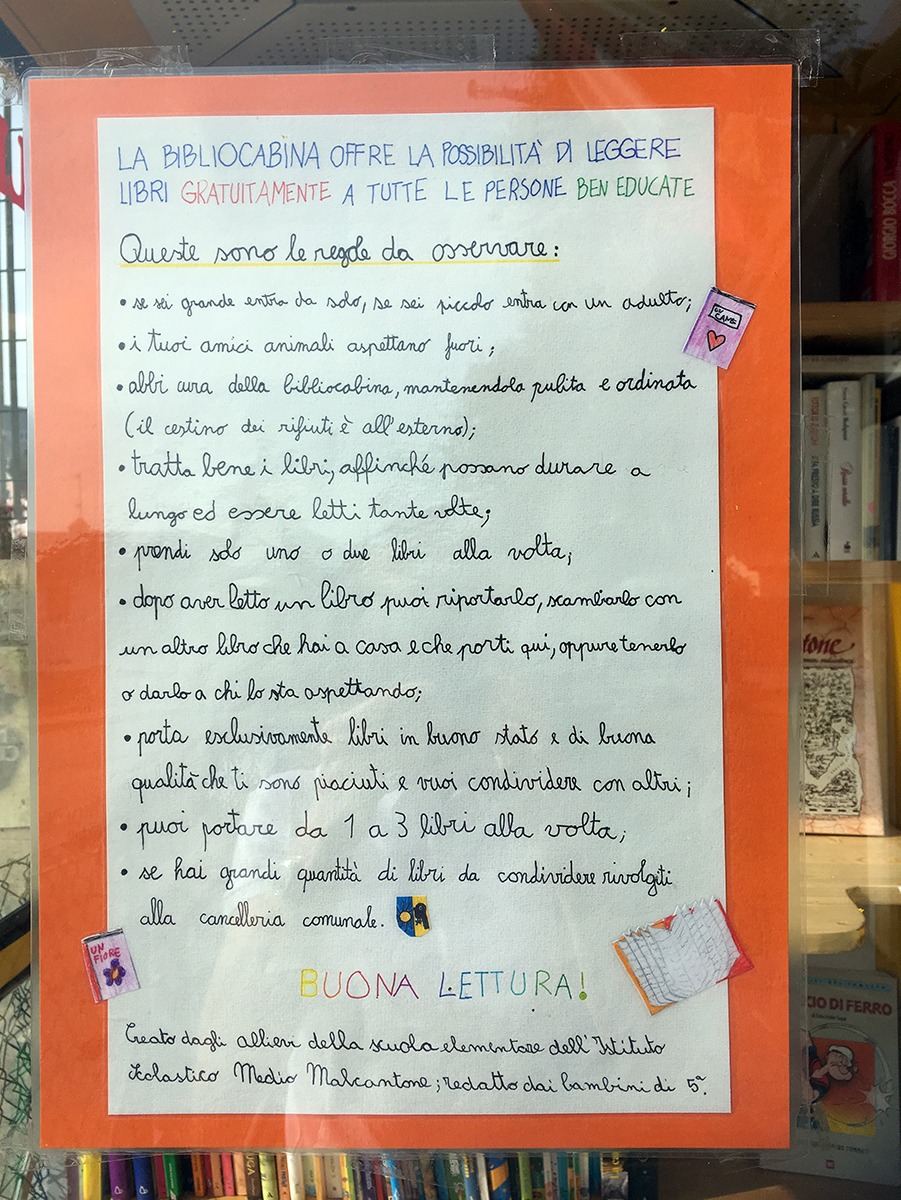 LA BIBLIOCABINA OFFRE LA POSSIBILITÀ DI LEGGERE
LIBRI GRATUITAMENTE A TUTTE LE PERSONE BEN EDUCATE
Queste sono le regole da osservare:
• se sei grande entra da solo, se sei piccolo entra con un adulto;
• i tuoi amici animali aspettano fuori;
• abbi cura della bibliocabina, mantenendola pulita e ordinata
(il cestino dei rifiuti è all'esterno);
• tratta bene i libri, affinché possano durare a
lungo ed essere letti tante volte;
• prendi solo uno o due libri alla volta;
• dopo aver letto un libro puoi riportarlo, scambiarlo con
un altro libro che hai a casa e che porti qui, oppure tenerlo
o darlo a chi lo sta aspettando;
• porta esclusivamente libri in buono stato e di buona
qualità che ti sono piaciuti e vuoi condividere con altri;
• puoi portare da 1 a 3 libri alla volta;
• se hai grandi quantità di libri da condividere rivolgiti
alla cancelleria comunale.
UN
FIORE
BUONA LETTURA!
Creato dagli allievi della scuola elementare dell'Istituto
Scolastico Medio Malcantone; redatto dai bambini di 5ª.
GIORGIO BOCCA
CIO DI FERRO